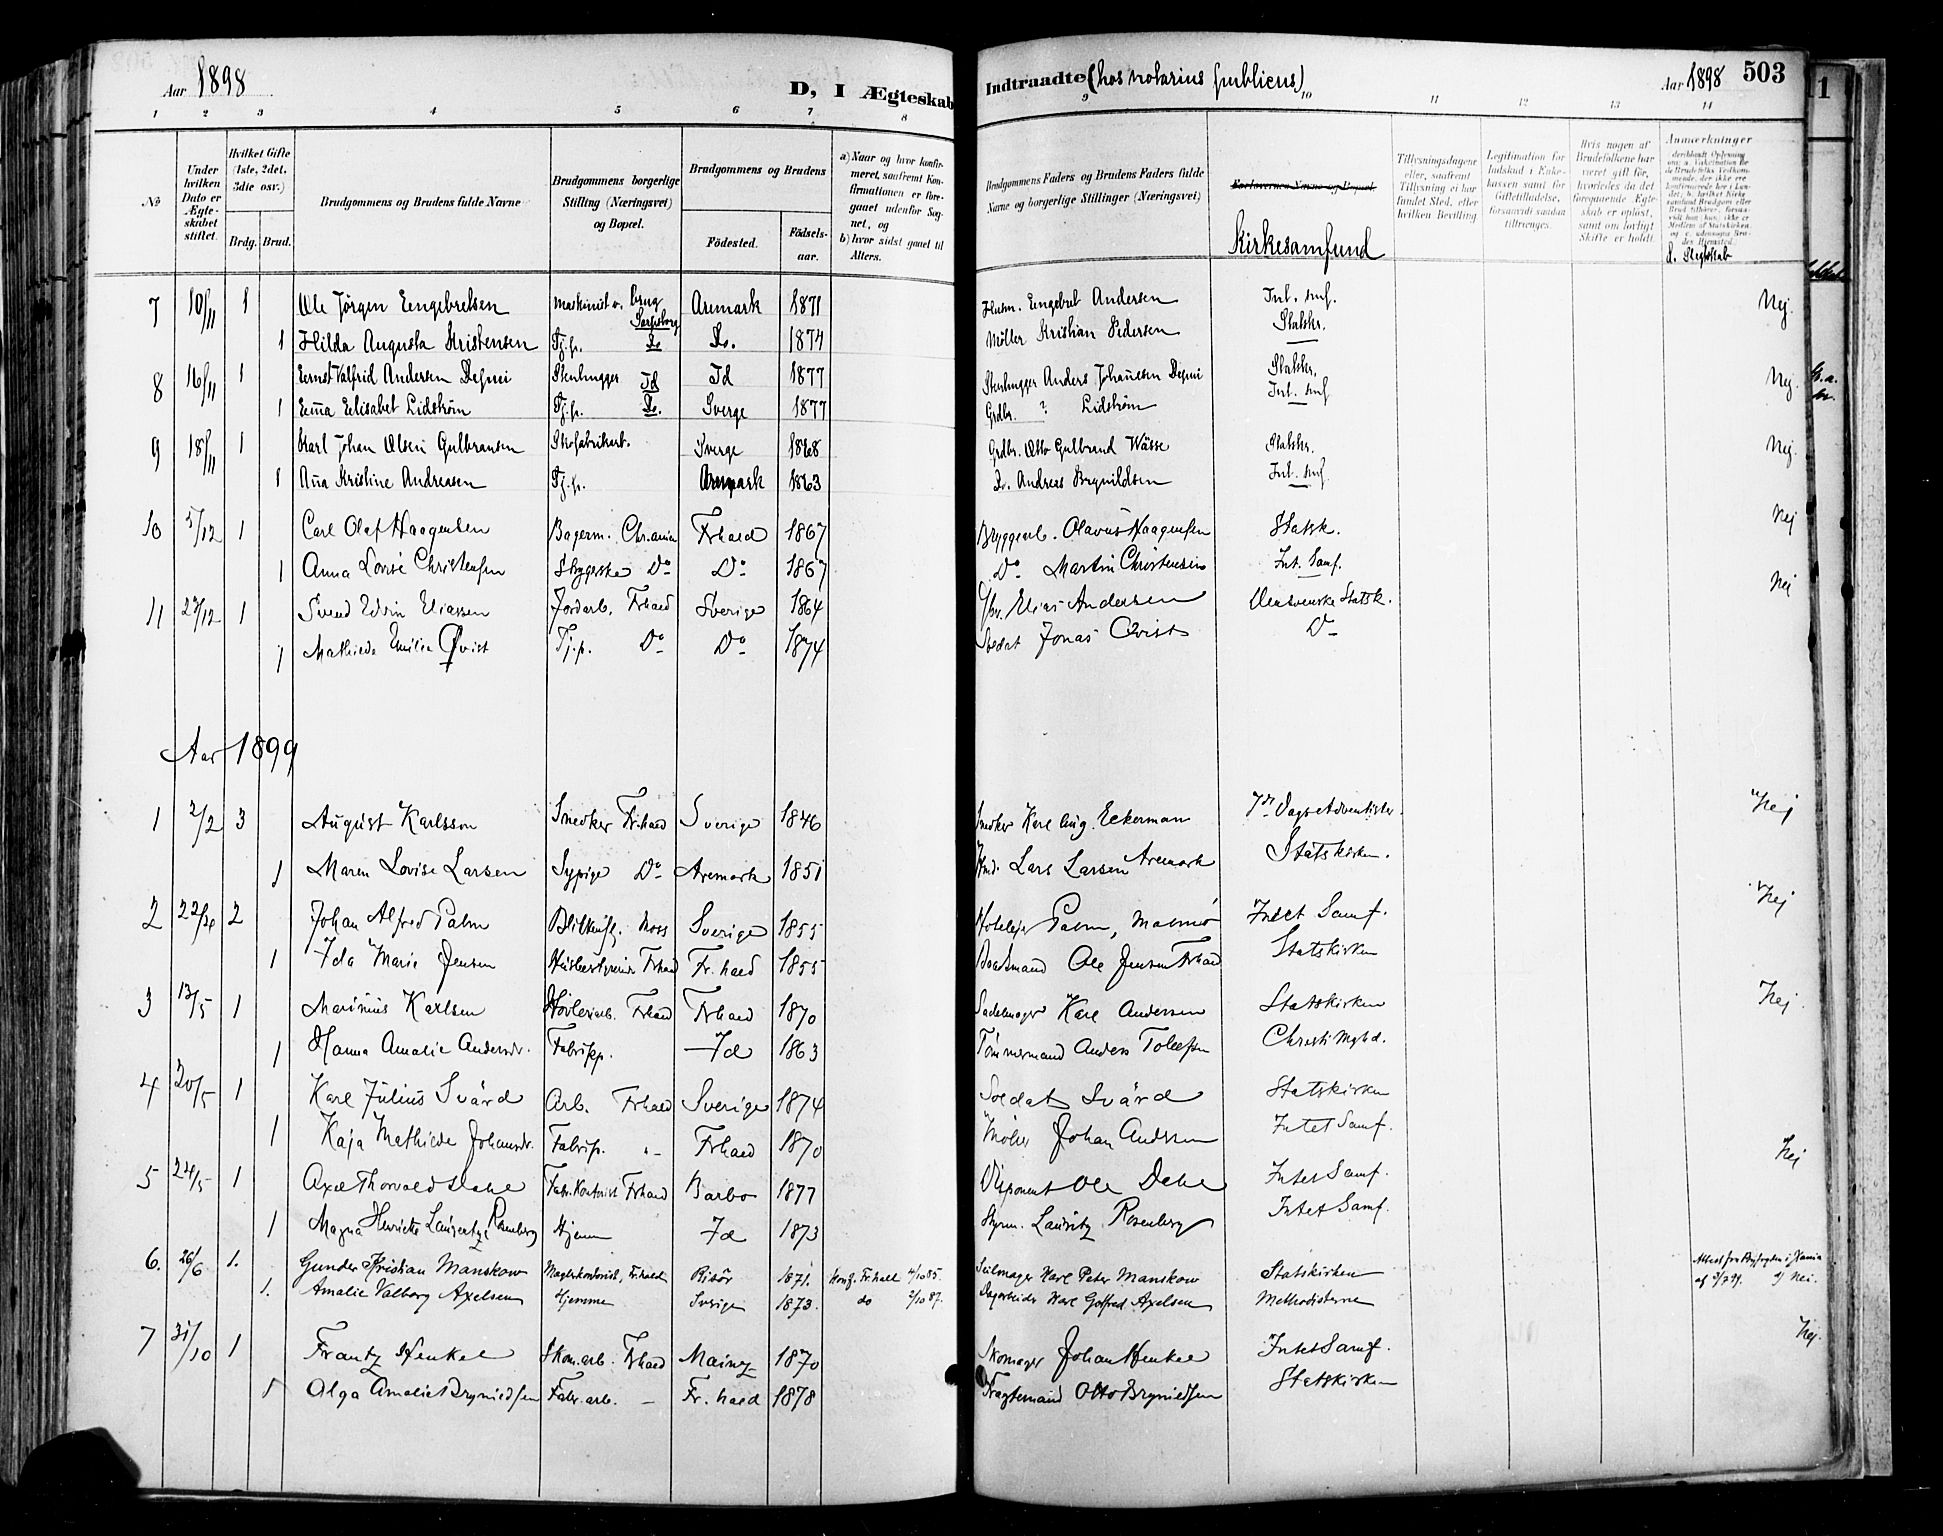 Aar 1898 D, I Ægteskab Indtraadte (hos notarius publicus) Aar 1898 503
1 2 3 4 5 6 7 8 9 10 11 12 13 14
No Under hvilken Dato er Ægteskabet stiftet. Hvilket Gifte (1ste, 2det, 3die osv.) Brdg. Brud. Brudgommens og Brudens fulde Navne Brudgommens borgerlige Stilling (Næringsvei) og Bopæl. Brudgommens og Brudens Födested. Födsels-aar. a) Naar og hvor konfirmeret, saafremt Konfirmationen er foregaaet udenfor Sognet, og b) hvor sidst gaaet til Alters.
Brudgommens Faders og Brudens Faders fulde Navne og borgerlige Stillinger (Næringsvei) Forlovernes Navne og Bopæl Kirkesamfund Tillysningsdagene eller, saafremt Tillysning ei har fundet Sted, efter hvilken Bevilling. Legitimation for Indskud i Enkekassen samt for Giftetilladelse, forsaavidt saadan tiltrænges. Hvis nogen af Brudefolkene har været gift för, hvorledes da det foregaaende Ægteskab er oplöst, samt om lovligt Skifte er holdt. Anmerkninger d. Slegtskab
7 10/11 1 Ole Jørgen Engebretsen Maskinist v. brug Sarpsborg Aremark 1871 Husm. Engebret Andersen Int. smf. Nej.
1 Hilda Augusta Kristensen Tj.p. Do Do. 1874 Möller Kristian Pedersen Statskr.
8 16/11 1 Ernst Valfrid Andersen Degnei Stenhugger Id Id 1877 Stenhugger Anders Johansen Degnei Statskr. Nej.
1 Emma Elisabet Lidström Tj.p. Do. Sverge 1877 Grdbr. ? Lidström Int. smf
9 18/11 1 Karl Johan Olsen Gulbransen Skofabrikart. Sverge 1868 Grdbr. Otto Gulbrand Wässe Statskr. Nej.
1 Anna Kristine Andreasen Tj.p. Aremark 1863 Do. Andreas Brynildsen Int. smf.
10 5/12 1 Carl Olaf Haagensen Bagerm. Chr.ania Frhald 1867 Bryggearb. Olavus Haagensen Statsk. Nej
1 Anna Lovise Christensen Do Do 1867 Do Martin Christensen Int. Samf.
11 27/12 1 Svend Edvin Eliassen Jordarb. Frhald Sverige 1864 Elias Andersen Den svenske Statsk. Nej
1 Mathilde Emilie Qvist Tj.p. Do Do 1874 Soldat Jonas Qvist Do
Aar 1899
1 2/2 3 August Karlsson Snedker Fr.hald Sverige 1846 Snedker Karl Aug. Eckerman 7de Dags Adventister. Nej
1 Maren Lovise Larsen Sypige Do Aremark 1851 Lars Larsen Aremark Statskirken.
2 2 Johan Alfred Palm Moss Sverige 1855 Palm, Malmö Intet Samf. Nej
1 Ida Marie Jensen Husbestyrerinde Frhald Fr.hald 1855 Baadsmand Ole Jensen Frhald Statskirken
3 13/5 1 Marinius Karlsen Høvleriarb. Frhald Frhald 1870 Sadelmager Karl Andersen Statskirken Nej.
1 Hanna Amalie Andersdr. Fabrikp. Id 1863 Tømmermand Anders Tollefsen Christi Mghd.
4 20/5 1 Karl Julius Svärd Arb. Frhald Sverige 1874 Soldat Svärd Statskirken
1 Kaja Mathilde Johansdr. Fabrikp. " Frhald 1870 Møller Johan Andersen Intet Samf.
5 24/5 1 Axel Thorvald Dehe Fabr. Kontorist Frhald Barbo 1877 Disponent Ole Dehe Intet Samf. Nej
1 Magna Henriette Laurentze Rosenberg Hjemme Id 1873 Styrm. Lauritz Rosenberg Intet Samf.
6. 26/6 1. Gunder Kristian Manskow Maglerkontorist, Fr.hald Risör 1871. Konf. Fr.hald 4/10 85. Seilmager Karl Peter Manskow Statskirken Attest fra Byfogden i Xania
1. Amalie Valborg Axelsen Hjemme Sverige 1873. do 2/10 87. Dagarbeider Karl Gotfred Axelsen Methodisterne d) Nei.
7 31/10 1 Frantz Henkel Skom.arb. Frhald Mainz 1870 Skomager Johan Henkel Intet Samf. Nej.
1 Olga Amalie Brynildsen Fabr.arb. — Fr.hald 1878 Fragtemand Otto Brynildsen Statskirken